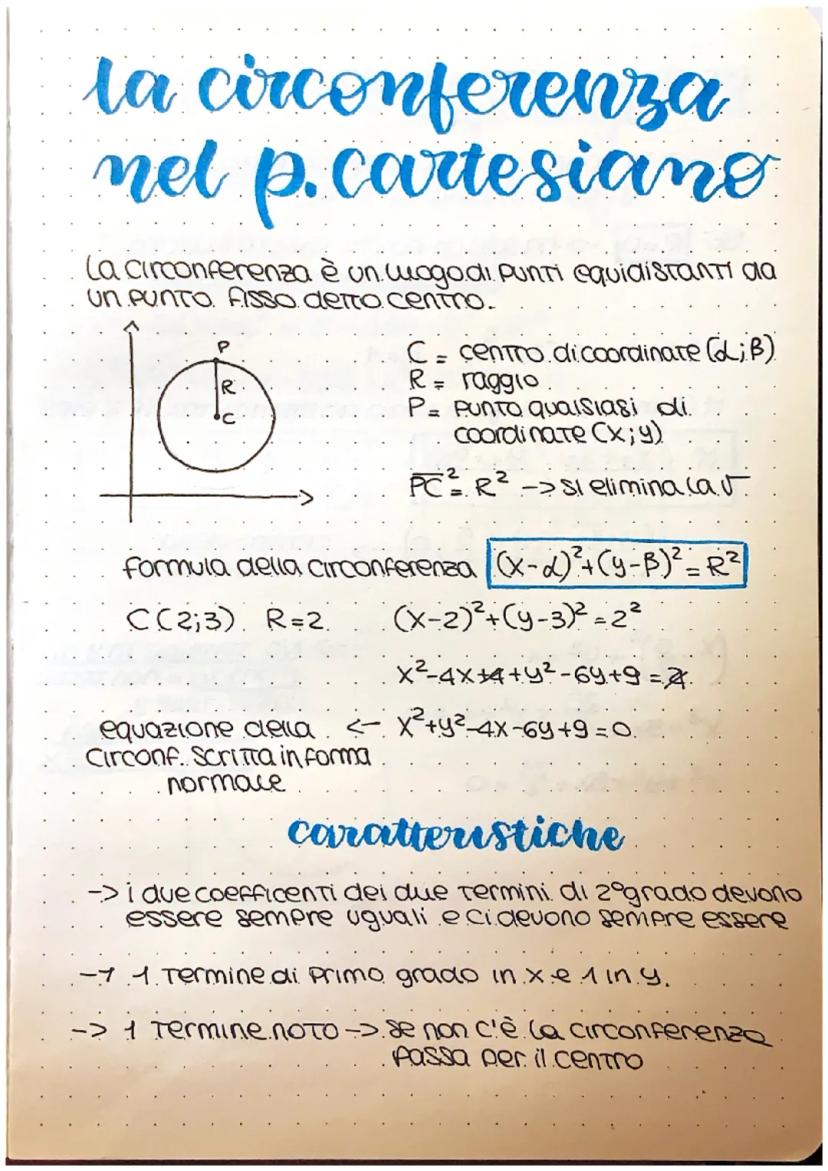 la circonferenza
nel p. cartesiano
La circonferenza è un luogo di punti equidistanti da
un punto fisso detto centro.
P
R
C
C = centro di coordinate (α;β)
R = raggio
P = punto qualsiasi di
coordinate (x;y)
PC² = R² -> si elimina la √
formula della circonferenza (x-α)²+(y-β)²=R²
C(2;3) R=2 (x-2)²+(y-3)²=2²
x²-4x+4+y²-6y+9=4
equazione della <- x²+y²-4x-6y+9=0
circonf. scritta in forma
normale
caratteristiche
-> i due coefficenti dei due termini di 2°grado devono
essere sempre uguali e ci devono sempre essere
-> 1 termine di primo grado in x e 1 in y.
-> 1 termine noto -> se non c'è la circonferenza
passa per il centro